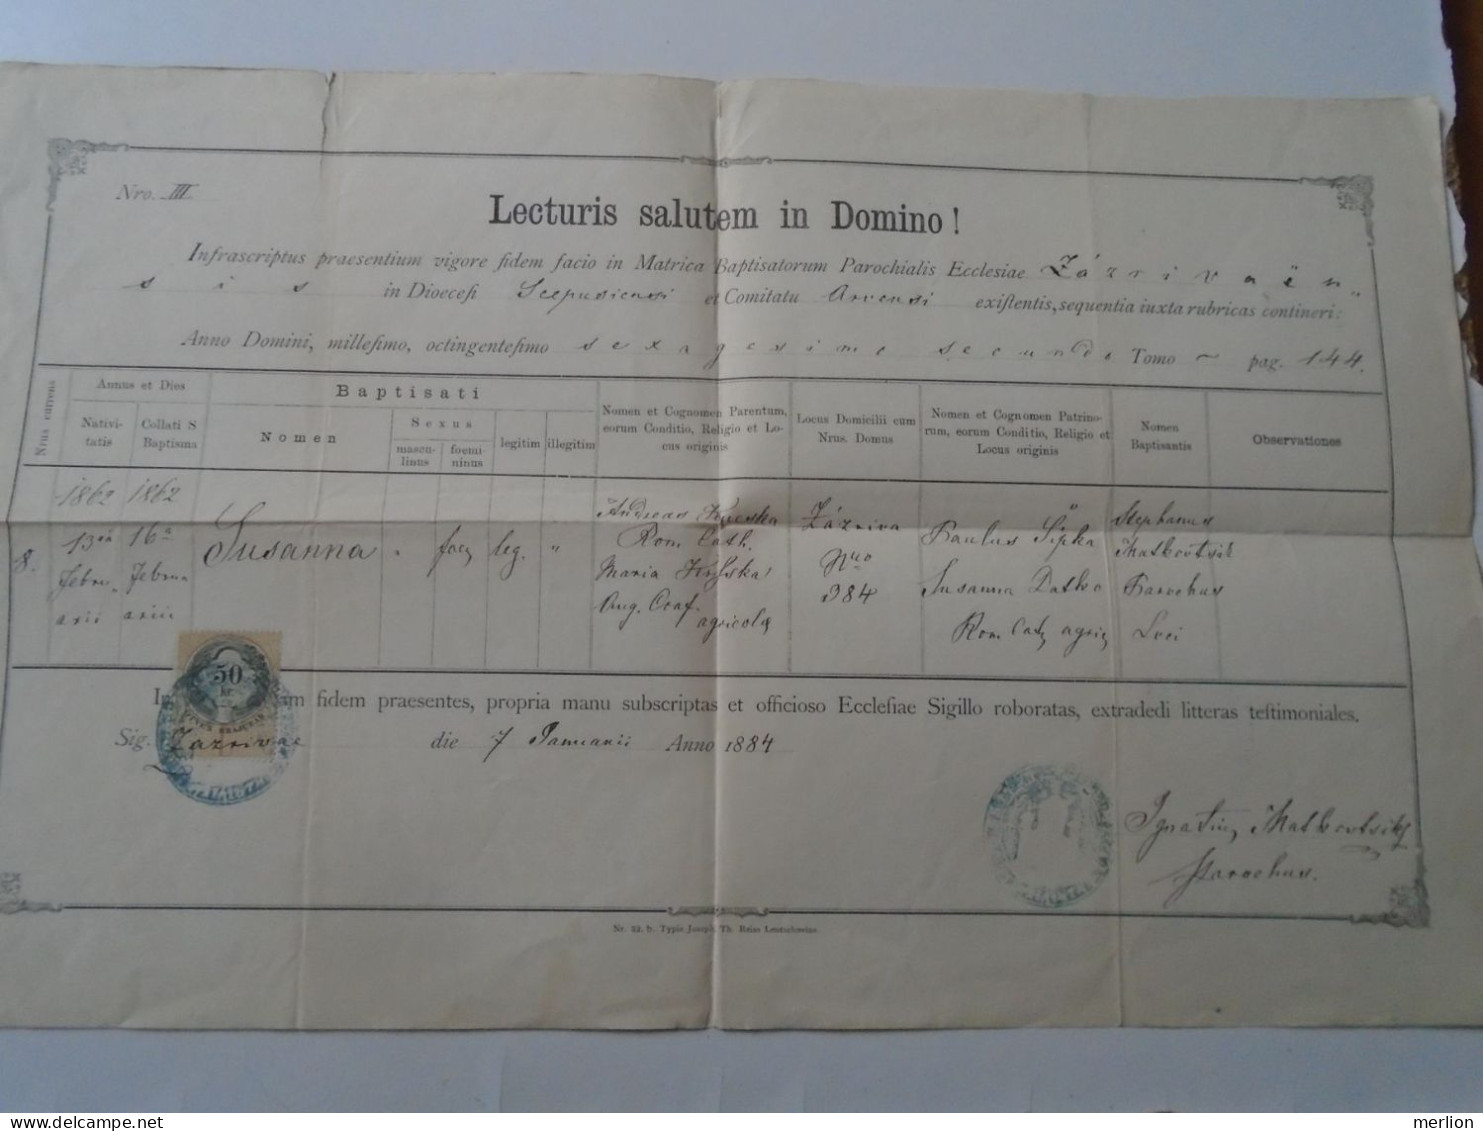 Nro. III
Lecturis salutem in Domino!
Infrascriptus praesentium vigore fidem facio in Matrica Baptisatorum Parochialis Ecclesiae Zázrivaën-
sis in Dioecesi Scepusiensi et Comitatu Arvensi existentis, sequentia iuxta rubricas contineri:
Anno Domini, millesimo, octingentesimo sexagesimo secundo Tomo – pag. 144.
Nrus currens
Annus et Dies
Nativi-
tatis
Collati S
Baptisma
Baptisati
Nomen
Sexus
mascu-
linus
foemi-
ninus
legitim
illegitim
Nomen et Cognomen Parentum,
eorum Conditio, Religio et Lo-
cus originis
Locus Domicilii cum
Nrus. Domus
Nomen et Cognomen Patrino-
rum, eorum Conditio, Religio et
Locus originis
Nomen
Baptisantis
Observationes
8.
1862
13a
Febru-
arii
1862
16a
Februa
ariii
Susanna
"
leg.
"
Andreas
Rom. Cath.
Maria
Aug. Conf.
agricolae
Zázriva
Nro
384
Paulus Sipka
Susanna
Rom. Cath
Stephanus
Matkovtsik
Parochus
Loci
50
kr.
In fidem praesentes, propria manu subscriptas et officioso Ecclesiae Sigillo roboratas, extradedi litteras testimoniales.
Sig. Zazrivae die 7 Januarii Anno 1884
Ignatius Matkovtsik
Parochus.
Nr. 32. b. Typis Joseph. Th. Reiss Leutschoviae.
delcampe.net
merlion